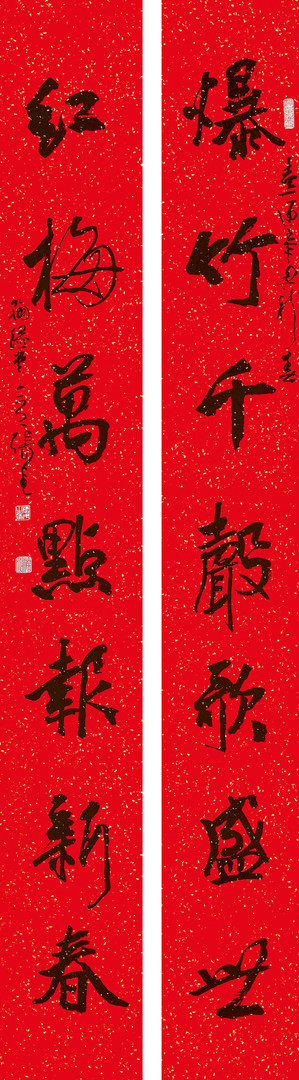 爆竹千聲歌盛世
紅梅萬點報新春